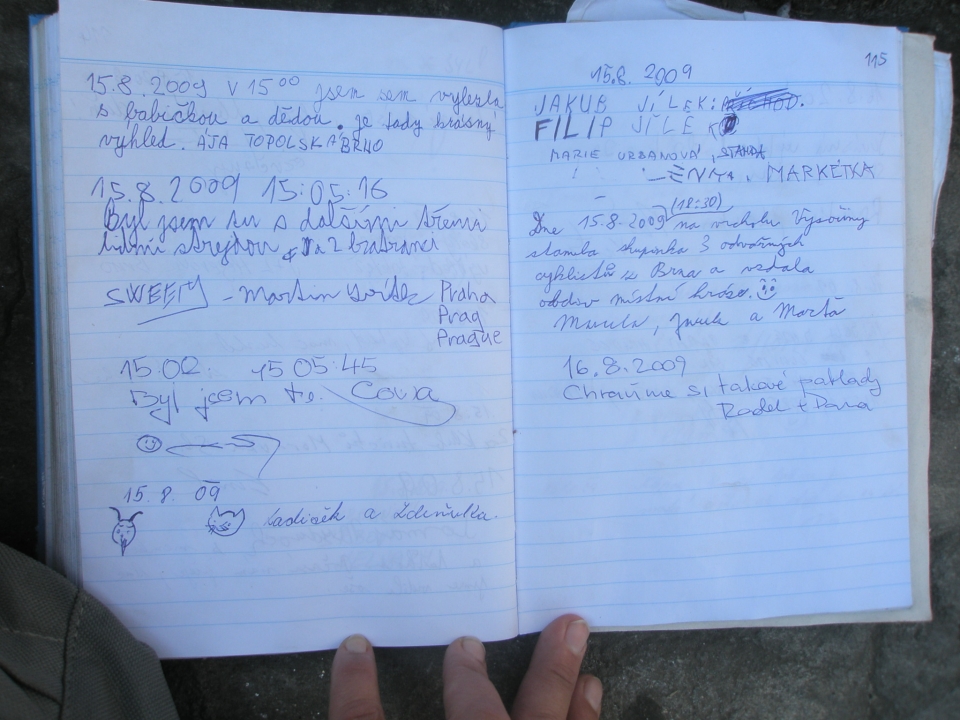 15.8.2009 v 15 00 jsem sem vylezla
s babičkou a dědou. je tady krásný
výhled. ÁJA TOPOLSKÁ BRNO
15.8.2009 15:05:16
Byl jsem tu s dalšími třemi
lidmi strejdou a 2 bratranci
SWEEPY - Martin Praha
Prag
Prague
15.02. 15 05:45
Byl jsem tu. Cova
15.8.09
Ladíček a Zdeňulka.
115
15.8. 2009
JAKUB JÍLEK:
FILIP JÍLEK
MARIE URBANOVÁ, STANDA
MARKÉTKA
Dne 15.8.2009 (18:30) na vrcholu Vysočiny
stanula skupinka 3 odvážných
cyklistů z Brna a vzdala
obdiv místní kráse.
a Marta
16.8.2009
Chraňme si takové poklady
Radek + Pava